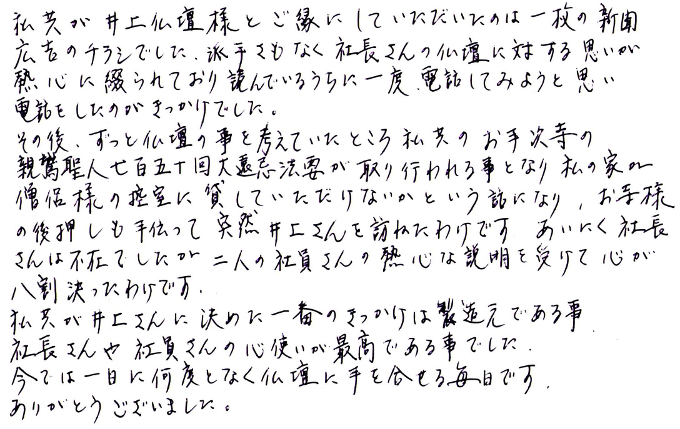 私共が井上仏壇様とご縁にしていただいたのは一枚の新聞
広告のチラシでした。派手さもなく社長さんの仏壇に対する思いが
熱心に綴られており読んでいるうちに一度、電話してみようと思い
電話をしたのがきっかけでした。
その後、ずっと仏壇の事を考えていたところ私共のお手次寺の
親鸞聖人七百五十回大遠忌法要が取り行われる事となり私の家が
僧侶様の控室に貸していただけないかという話になり、お寺様
の後押しも手伝って突然井上さんを訪ねたわけです あいにく社長
さんは不在でしたが二人の社員さんの熱心な説明を受けて心が
八割決ったわけです.
私共が井上さんに決めた一番のきっかけは製造元である事
社長さんや社員さんの心使いが最高である事でした.
今では一日に何度となく仏壇に手を合せる毎日です.
ありがとうございました。